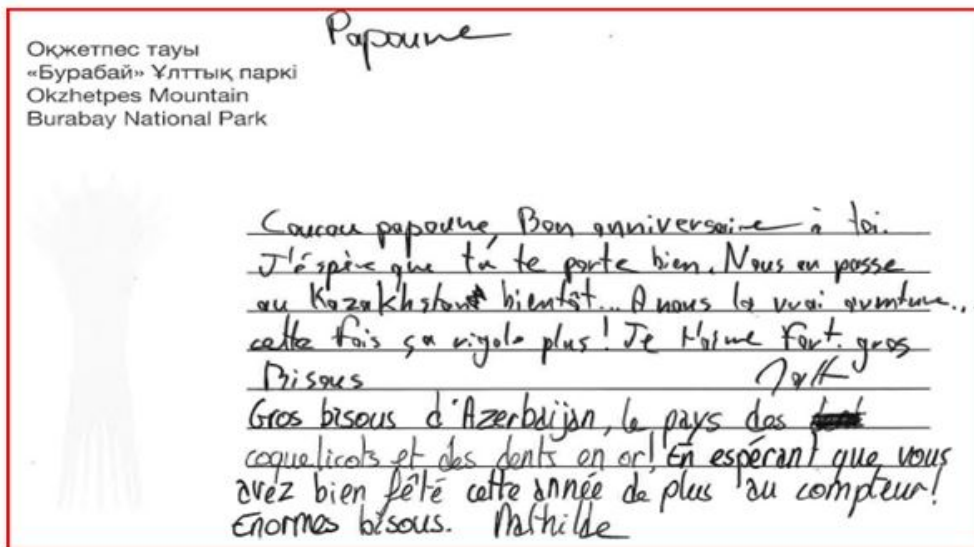 Papoune
Оқжетпес тауы
«Бурабай» Ұлттық паркі
Okzhetpes Mountain
Burabay National Park
Coucou papoune, Bon anniversaire à toi.
J'éspère que tu te porte bien. Nous on passe
au Kazakhstan bientôt... A nous la vrai aventure..
cette fois ça rigole plus! Je t'aime fort. gros
Bisous
Gros bisous d'Azerbaïjan, le pays des
coquelicots et des dents en or! En espérant que vous
avez bien fêté cette année de plus au compteur!
Enormes bisous. Mathilde